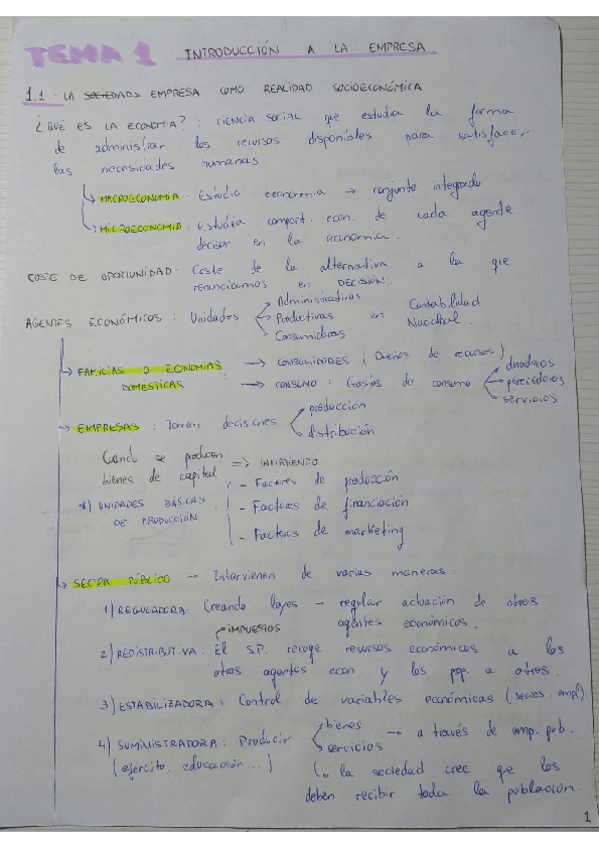 TEMA 1 INTRODUCCIÓN A LA EMPRESA
1.1 - LA SOCIEDAD EMPRESA COMO REALIDAD SOCIOECONÓMICA
¿QUÉ ES LA ECONOMÍA? : CIENCIA SOCIAL que estudia la forma
de administrar los recursos disponibles para satisfacer
las necesidades humanas
MACROECONOMÍA : Estudio economía → conjunto integrado
MICROECONOMÍA : Estudia comport. econ. de cada agente
decisor en la economía.
COSTE DE OPORTUNIDAD : Coste de la alternativa a la que
renunciamos en DECISIÓN.
AGENTES ECONÓMICOS : Unidades
Administrativas
Productivas en Contabilidad
Consumidoras Nacional.
FAMILIAS O ECONOMÍAS → CONSUMIDORES (Dueños de recursos)
DOMÉSTICAS → CONSUMO : Gastos de consumo
duraderos
perecederos
servicios
→ EMPRESAS : Toman decisiones
producción
distribución
Cando se producen
bienes de capital => INVIRTIENDO
*) UNIDADES BÁSICAS
DE PRODUCCIÓN :
- Factores de producción
- Factores de financiación
- Factores de marketing
SECTOR PÚBLICO → Intervienen de varias maneras :
1) REGULADORA : Creando leyes - regular actuación de otros
agentes económicos.
IMPUESTOS
2) REDISTRIBUTIVA : El S.P. recoge recursos económicos a los
otros agentes econ y los pop. a otros.
3) ESTABILIZADORA : Control de variables económicas (precios, empl)
4) SUMINISTRADORA : Producir
bienes
servicios → a través de emp. pub.
(ejercito, educación...) la sociedad cree que los
deben recibir toda la población.
1